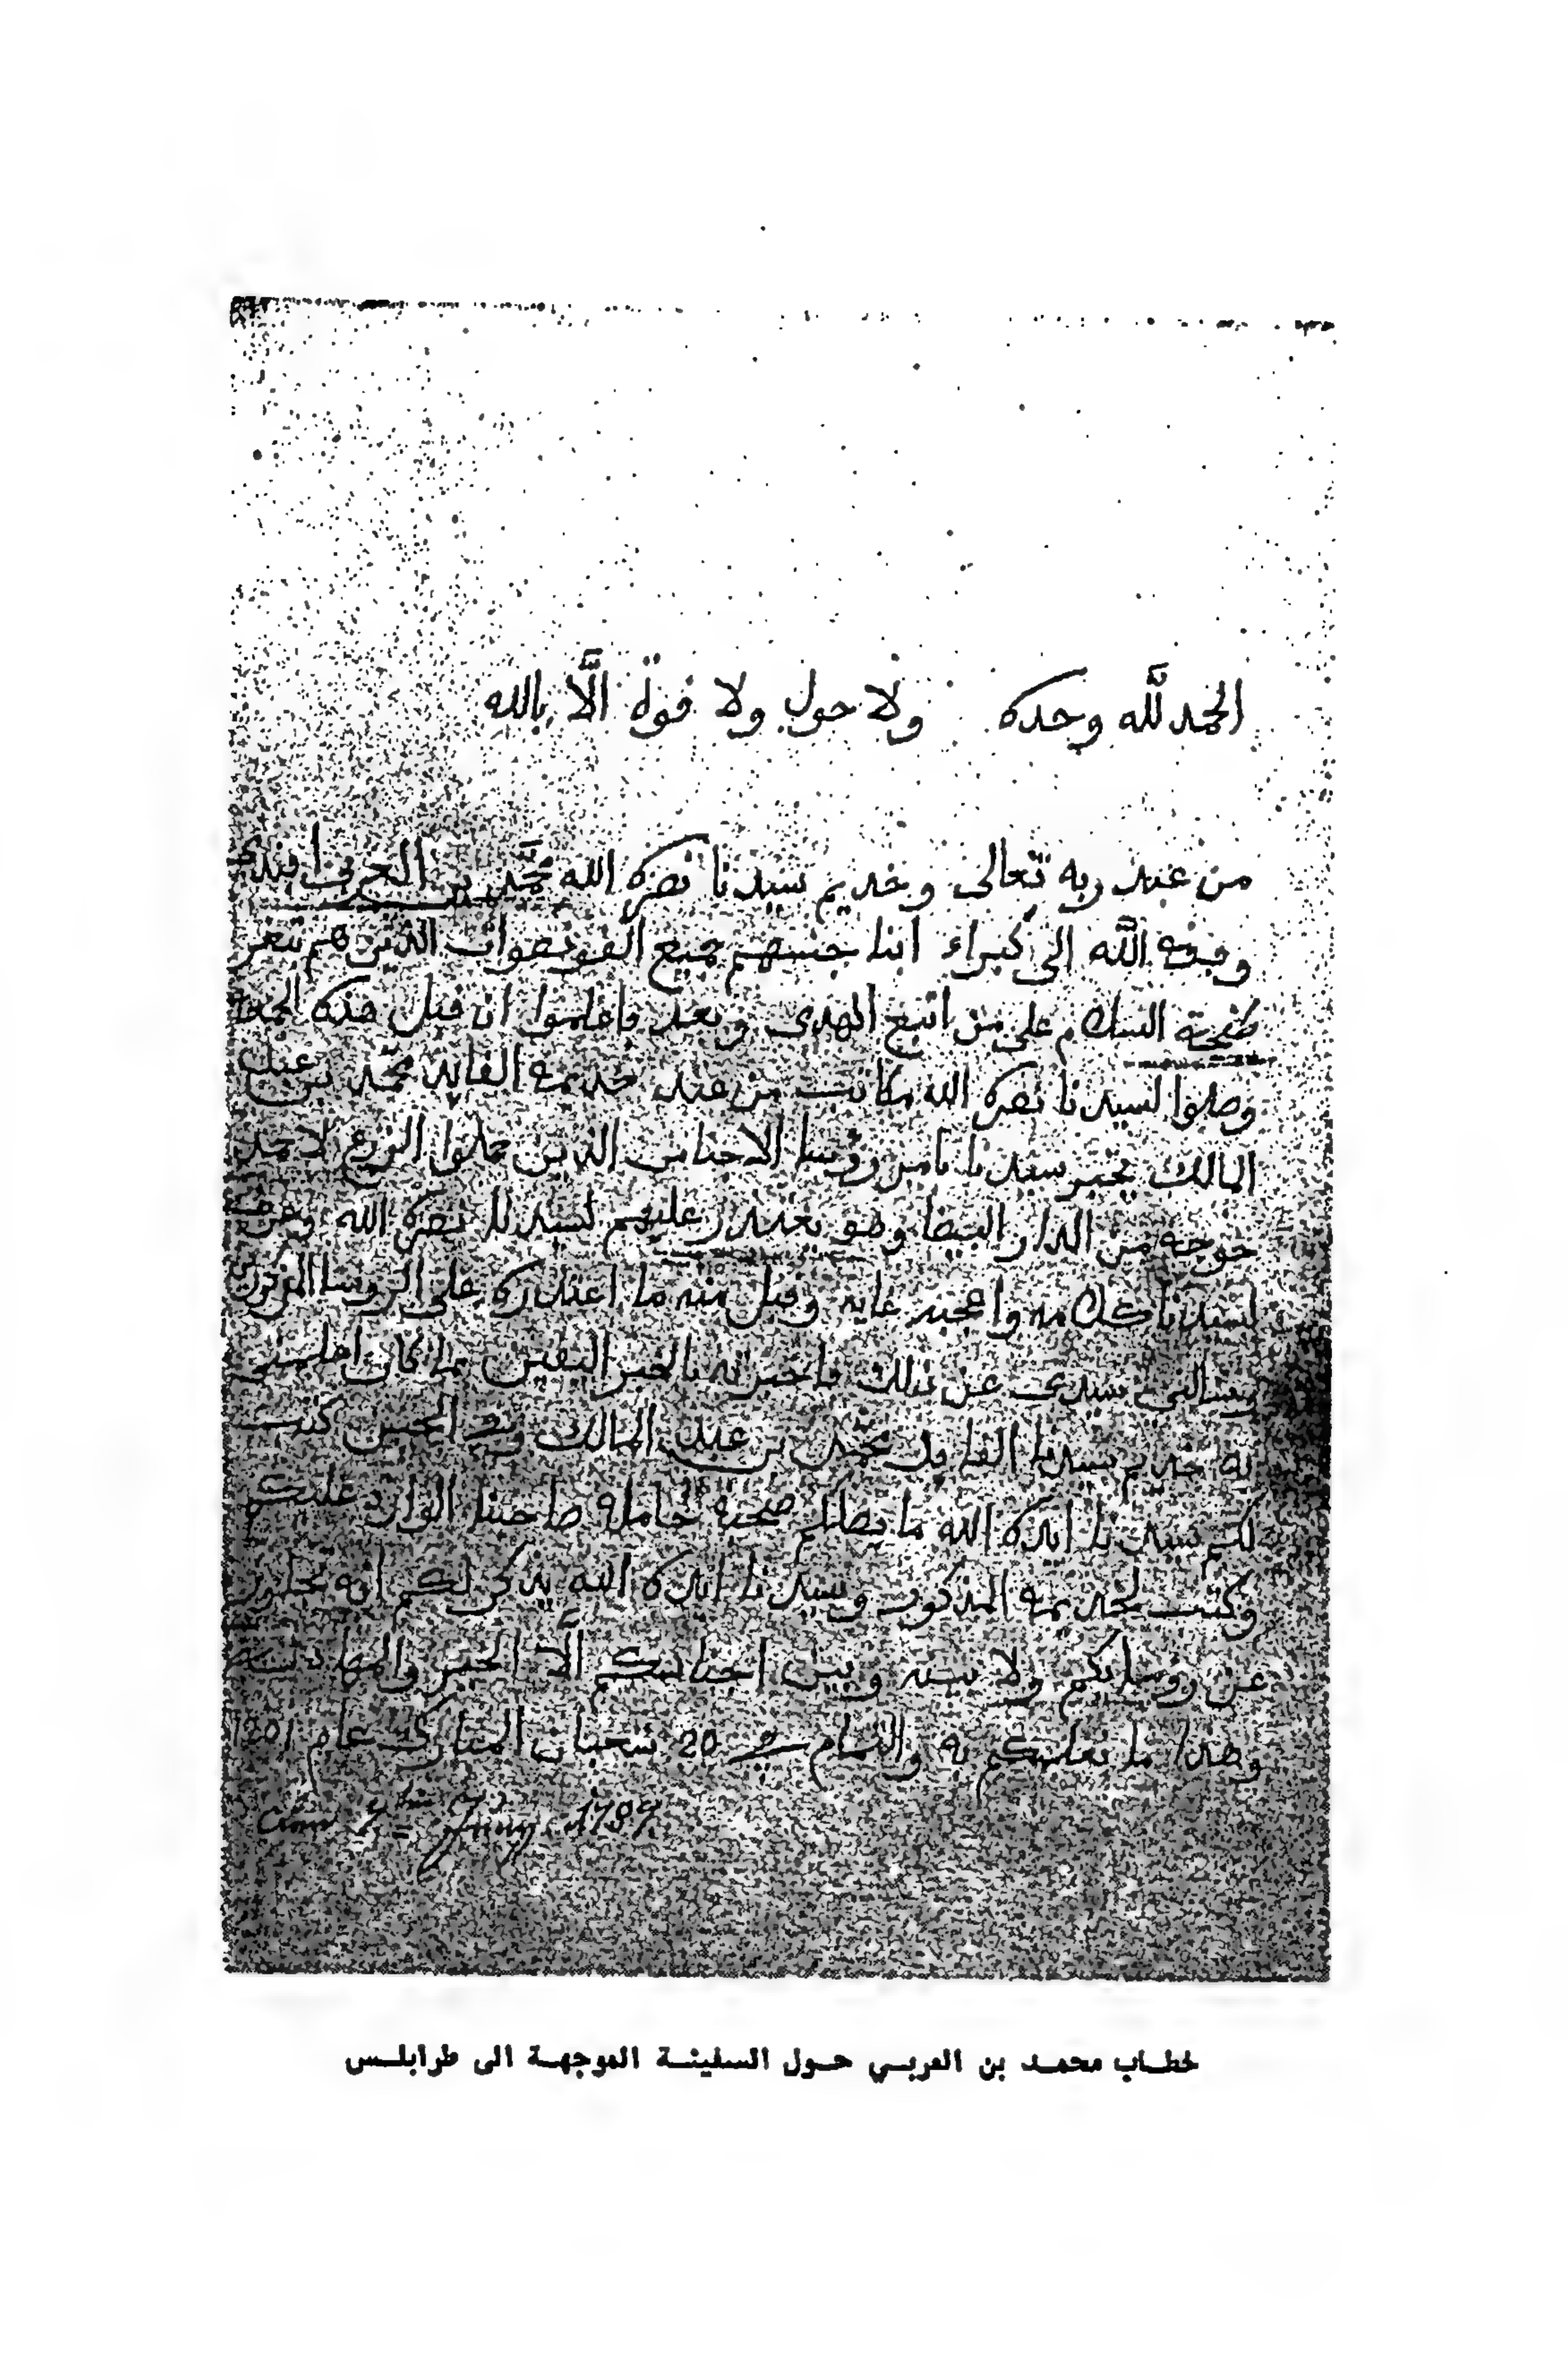 الحمد لله وحده ولا حول ولا قوة إلّا بالله
من عبد ربه تعالى وخديم سيدنا نصره الله محمّد بن العربي افندي
وفقه الله الى كبراء ابنا جنسهم جميع القونصوات الذين هم بثغر
طنجة السلام على من اتبع الهدى وبعد فاعلموا ان قبل هذه
وصلوا لسيدنا نصره الله مكاتب من عند خديمه القايد محمّد بن عبد
المالك يخبر سيدنا بامر رؤسا الاجناس الذين حملوا الزرع لاحمد
خوجه من الدار البيضا وهو يعتذر عليهم لسيدنا نصره الله
لسيدنا كلامه واعجبه غايه وقبل منه ما اعتذاره على الروسا المذكورين
وسالني سيدي عن ذلك فاخبرته بالخبر اليقين كما كان
به خديم سيدنا القايد محمّد بن عبد المالك كتب
لكم سيدنا ايده الله ما يصلكم صحبة حامله صاحبنا الوارد عليكم
وكتب لخديمه المذكور وسيدنا ايده الله يذكر لكم انه
عن رؤسايكم ولا بينه وبين اجناسكم إلّا الخير
وهذا ما نعلمكم به والتمام في 20 شعبان المبارك عام 1201
7 Juny 1787
خطاب محمد بن العربي حول السفينة الموجهة الى طرابلس